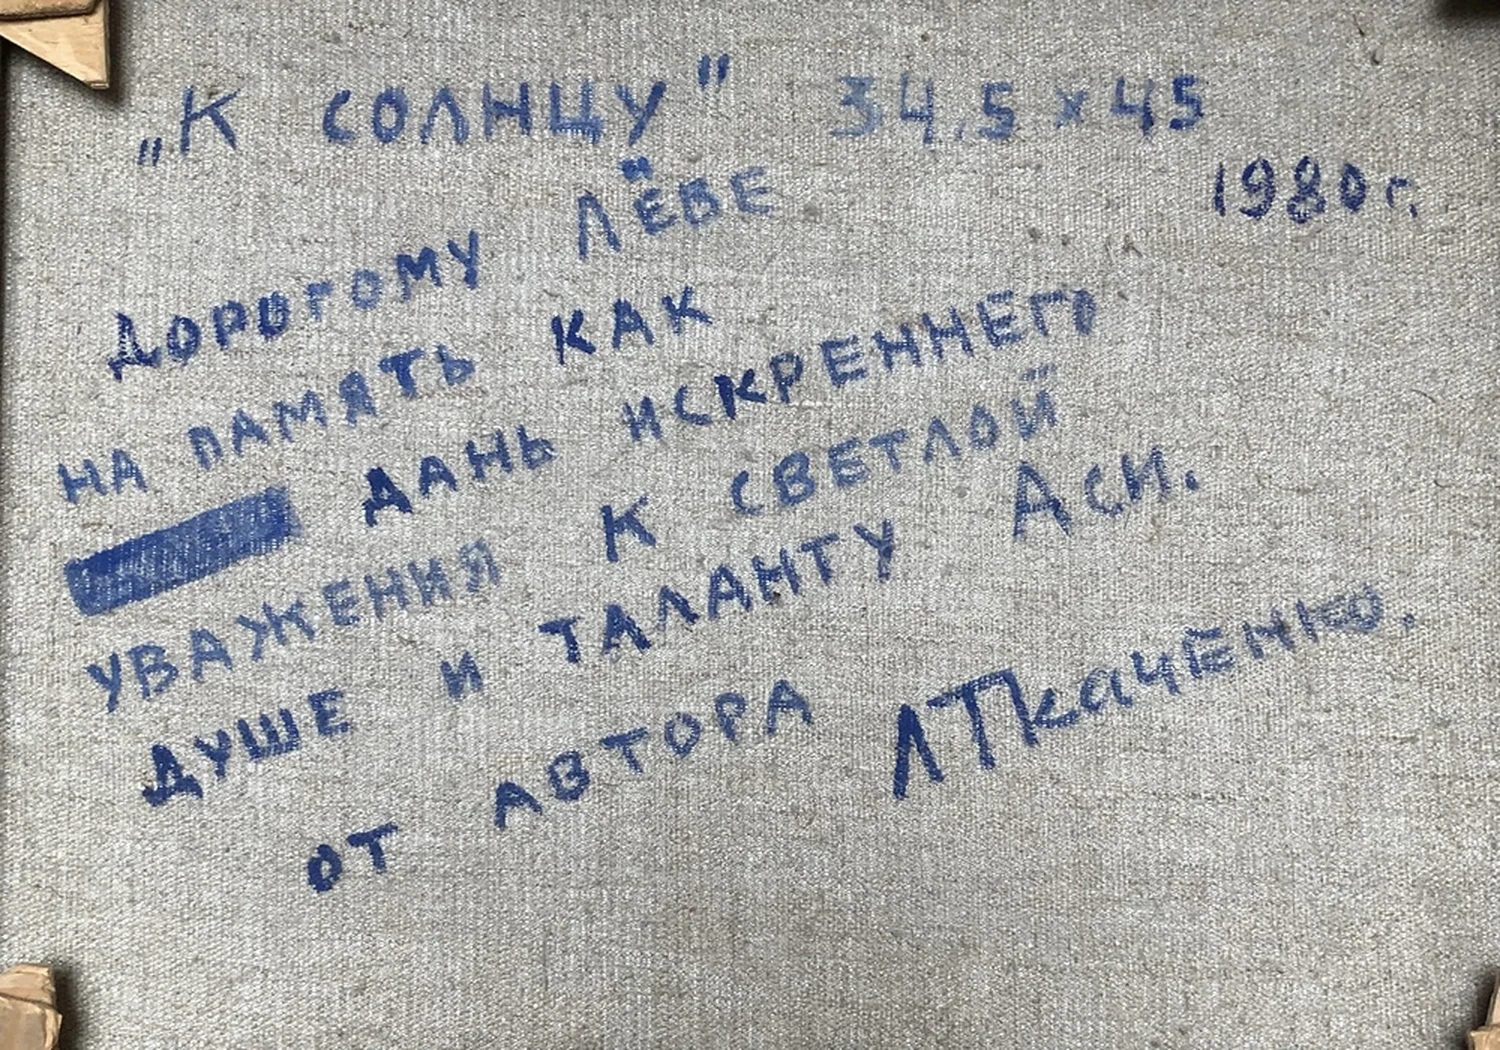 „К СОЛНЦУ" 34,5 х 45
1980 г.
ДОРОГОМУ ЛЁВЕ
НА ПАМЯТЬ КАК
ДАНЬ ИСКРЕННЕГО
УВАЖЕНИЯ К СВЕТЛОЙ
ДУШЕ И ТАЛАНТУ АСИ.
ОТ АВТОРА ЛТкаченко.